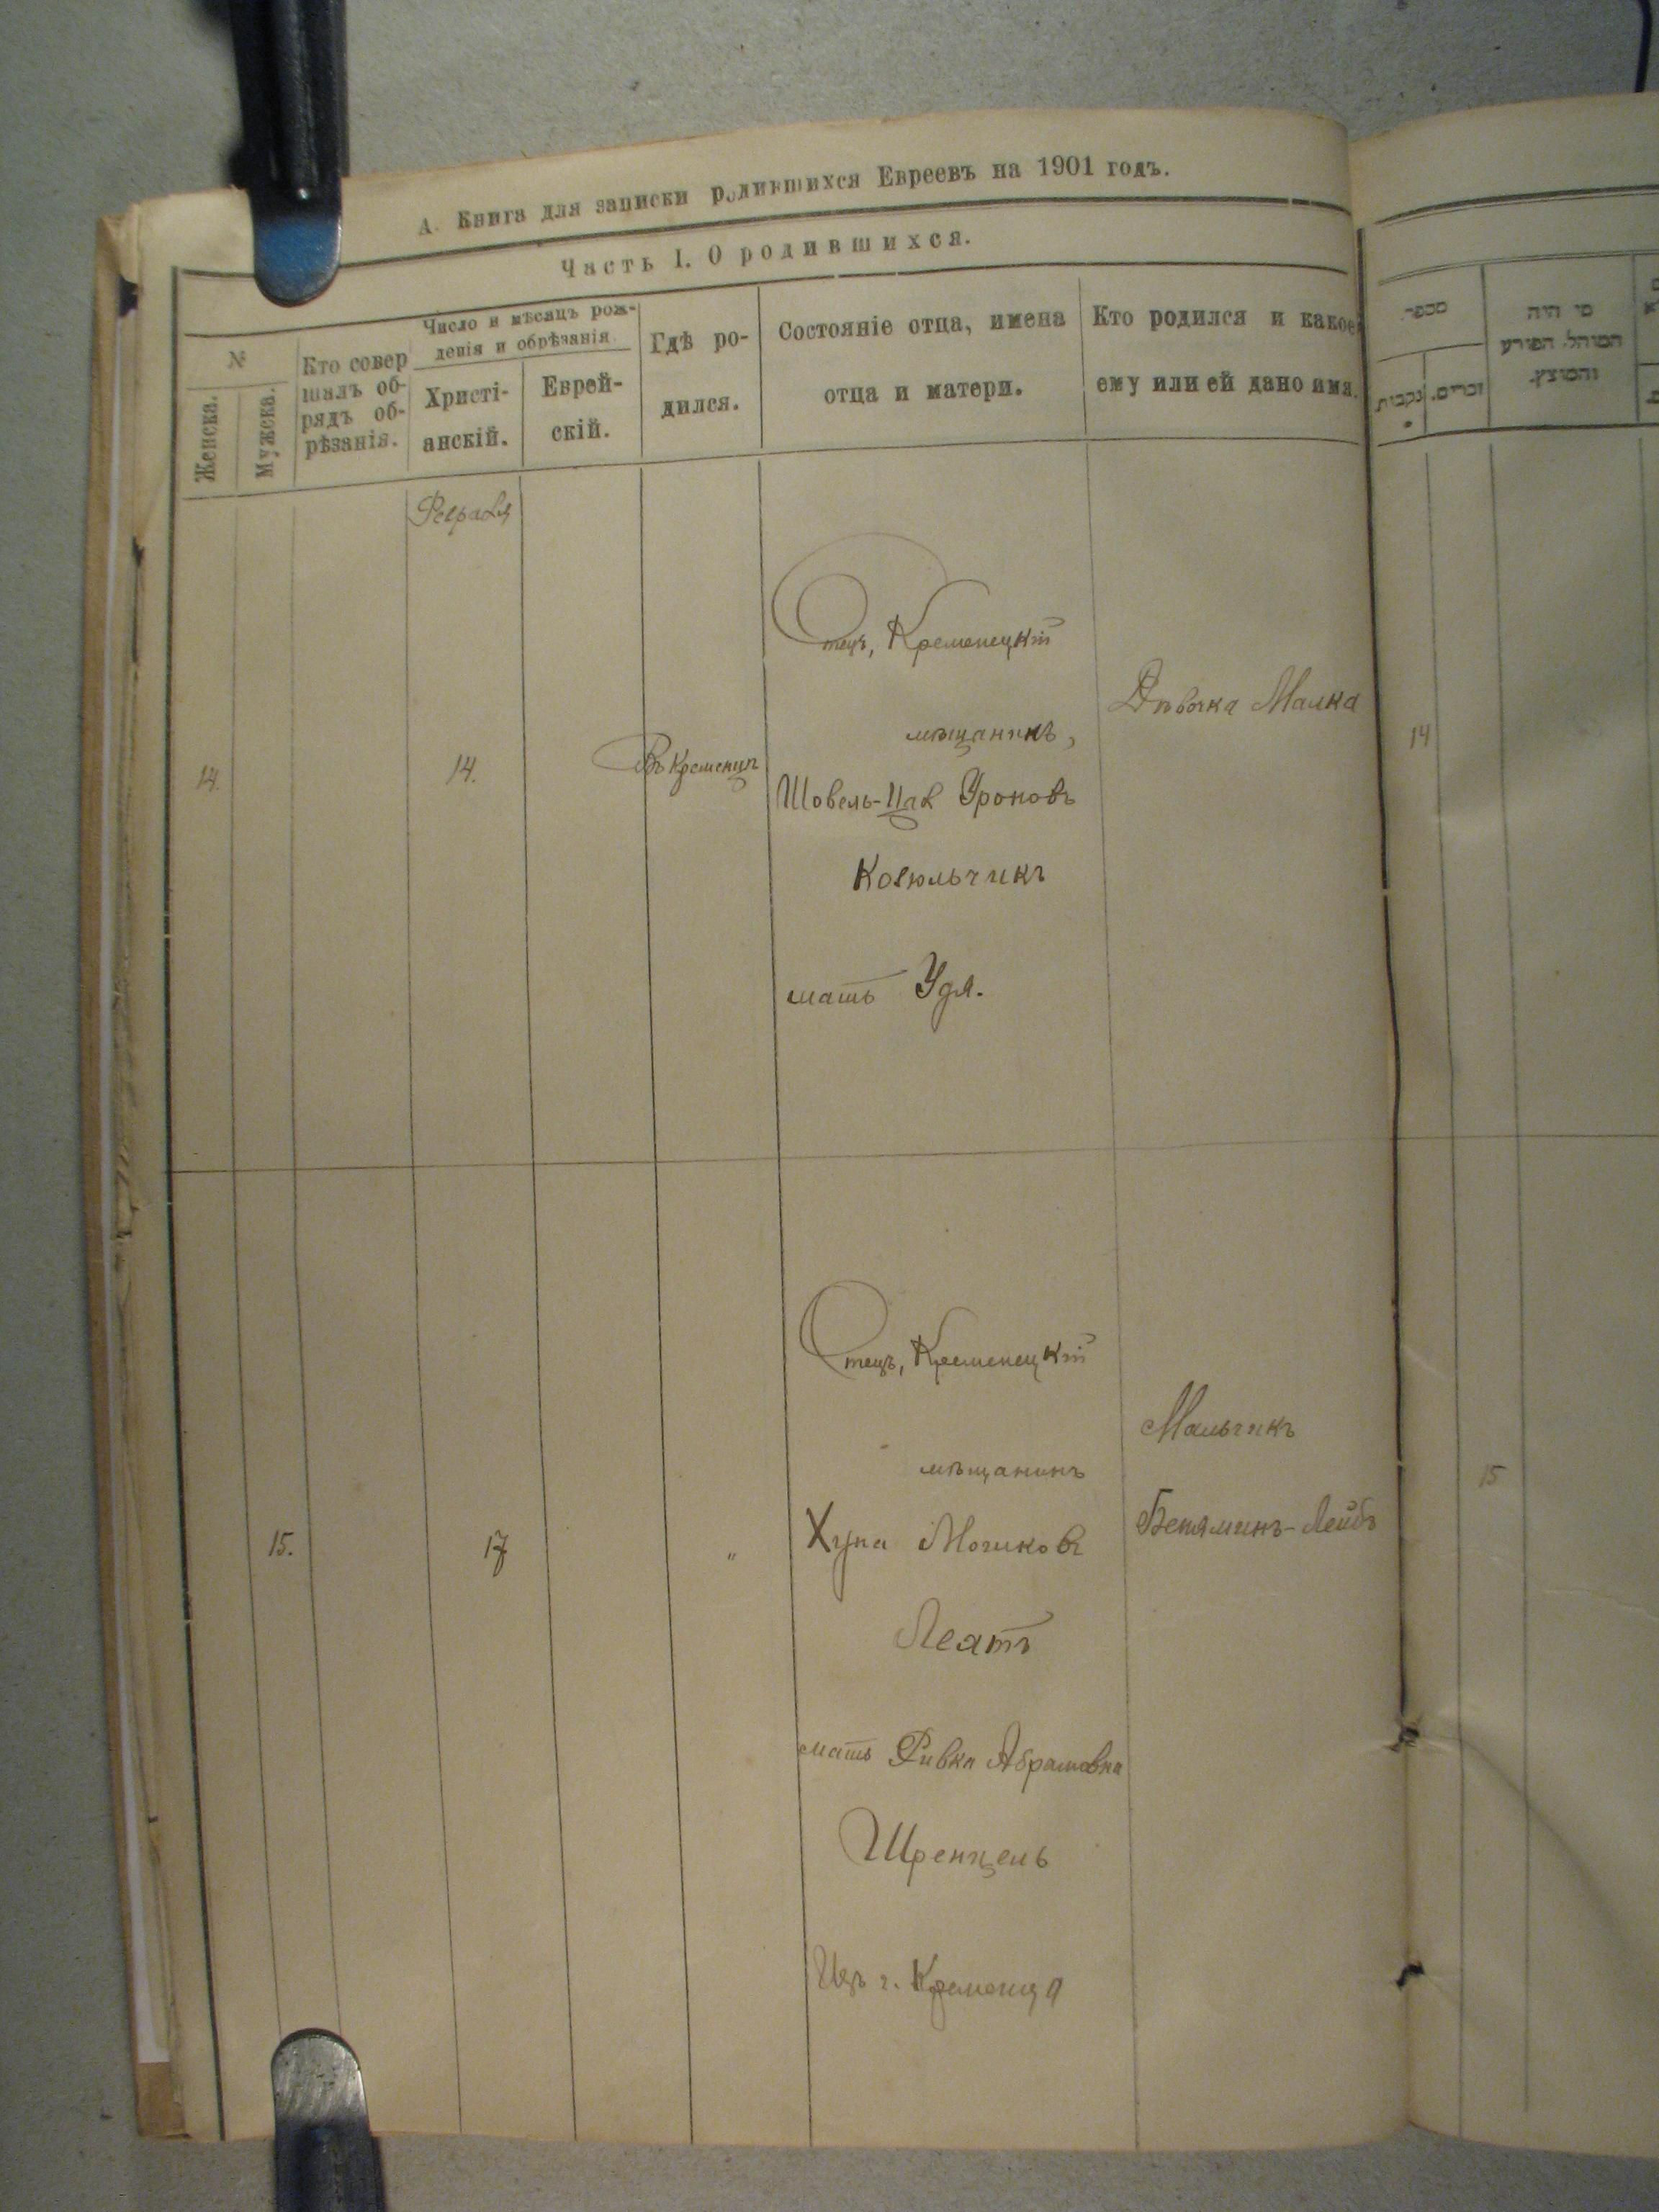 А. Книга для записки родившихся Евреевъ на 1901 годъ.
Часть I. О родившихся.
№
Женска.
Мужеска.
Кто совер
шалъ об-
рядъ об-
рѣзанія.
Число и мѣсяцъ рож-
денія и обрѣзанія.
Христі-
анскій.
Еврей-
скій.
Гдѣ ро-
дился.
Состояніе отца, имена
отца и матери.
Кто родился и какое
ему или ей дано имя.
14.
14.
Въ Кременцѣ
Отецъ, Кременецкій
мѣщанинъ,
Шовель- Уроновъ
мать Удя.
Дѣвочка Малка
15.
17
"
Отецъ, Кременецкій
мѣщанинъ
Хуна
мать Ривка Абрамовна
Шренцель
Изъ г. Кременца
Мальчикъ
Беняминъ-Лейбъ
מספר
נקבות.
זכרים.
מי היה
המוהל. הפורע
והמוצץ.
14
15